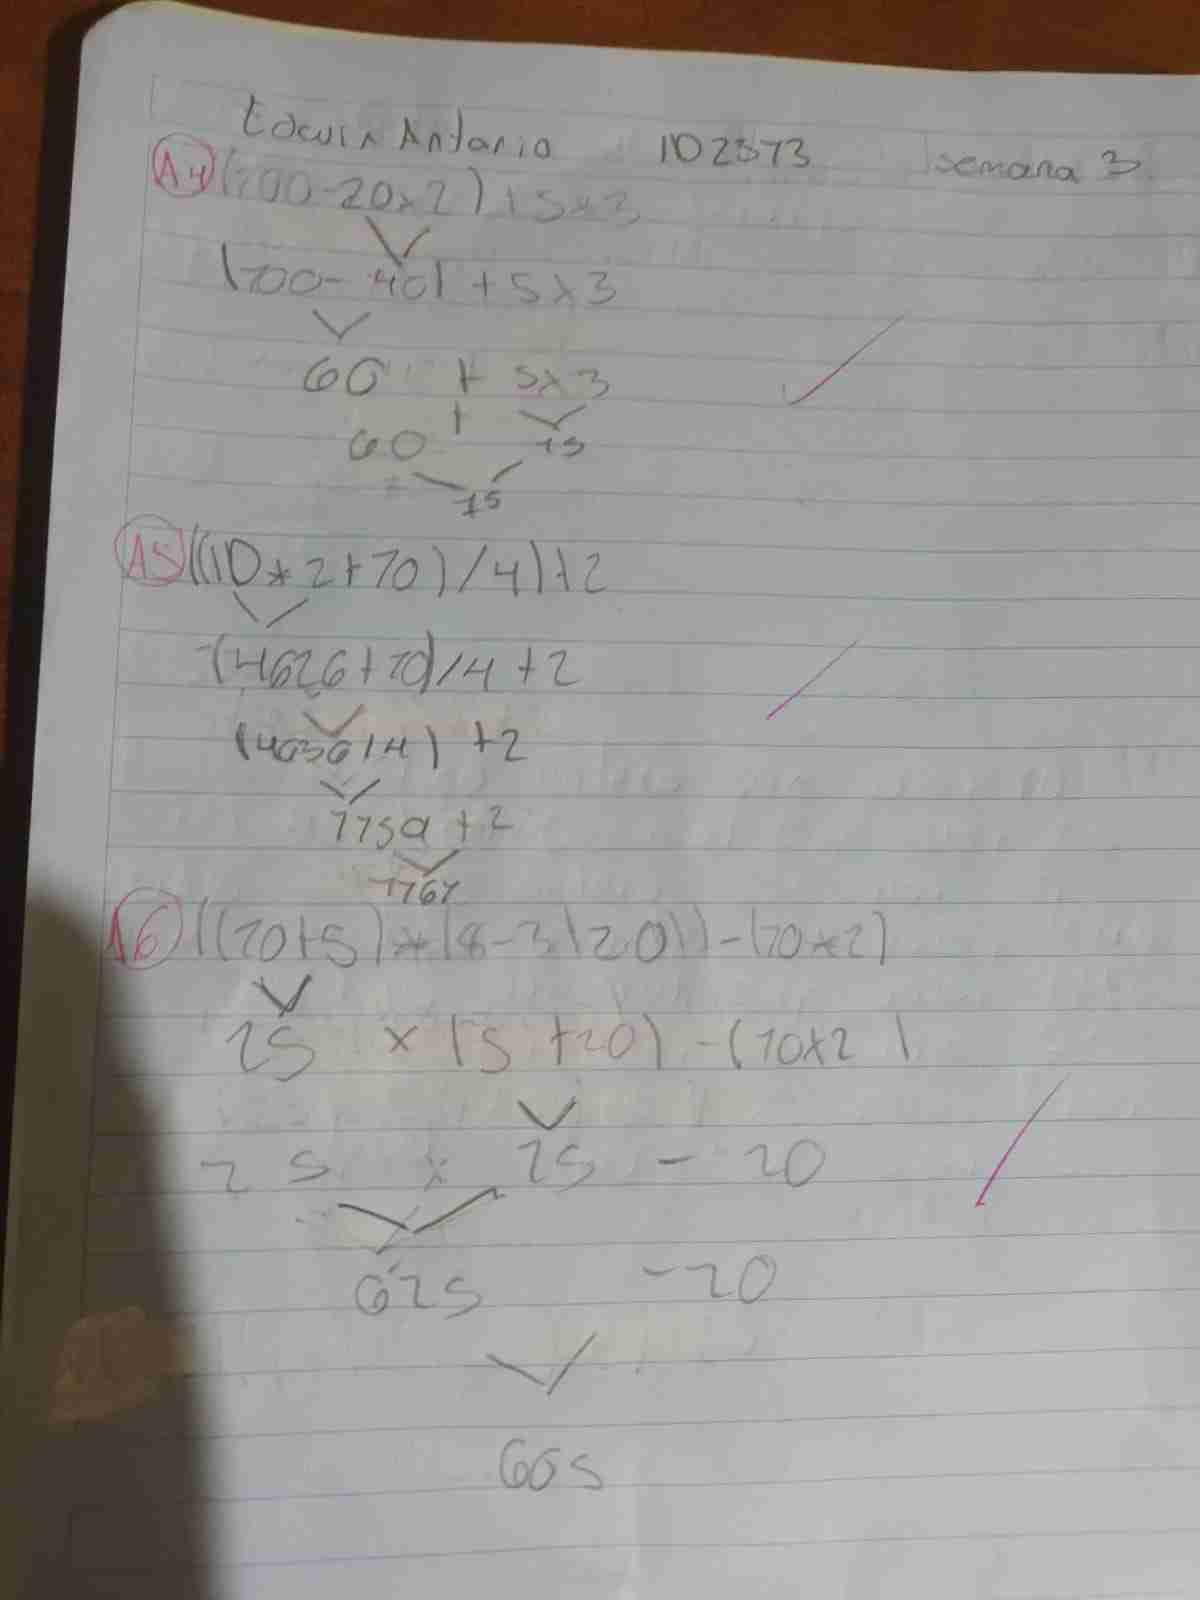 Edwin Antonio ID2373 semana 3
A4 (100-20x2)+5x3
(100-40)+5x3
60 + 5x3
60 + 15
75
A5 ((ID*2+10)/4)+2
(4626+10)/4+2
(4636/4)+2
1159+2
1161
A6 ((20+5)*(8-3(20))-(10*2)
25 x (5+20)-(10x2)
25 x 25 - 20
625 -20
605